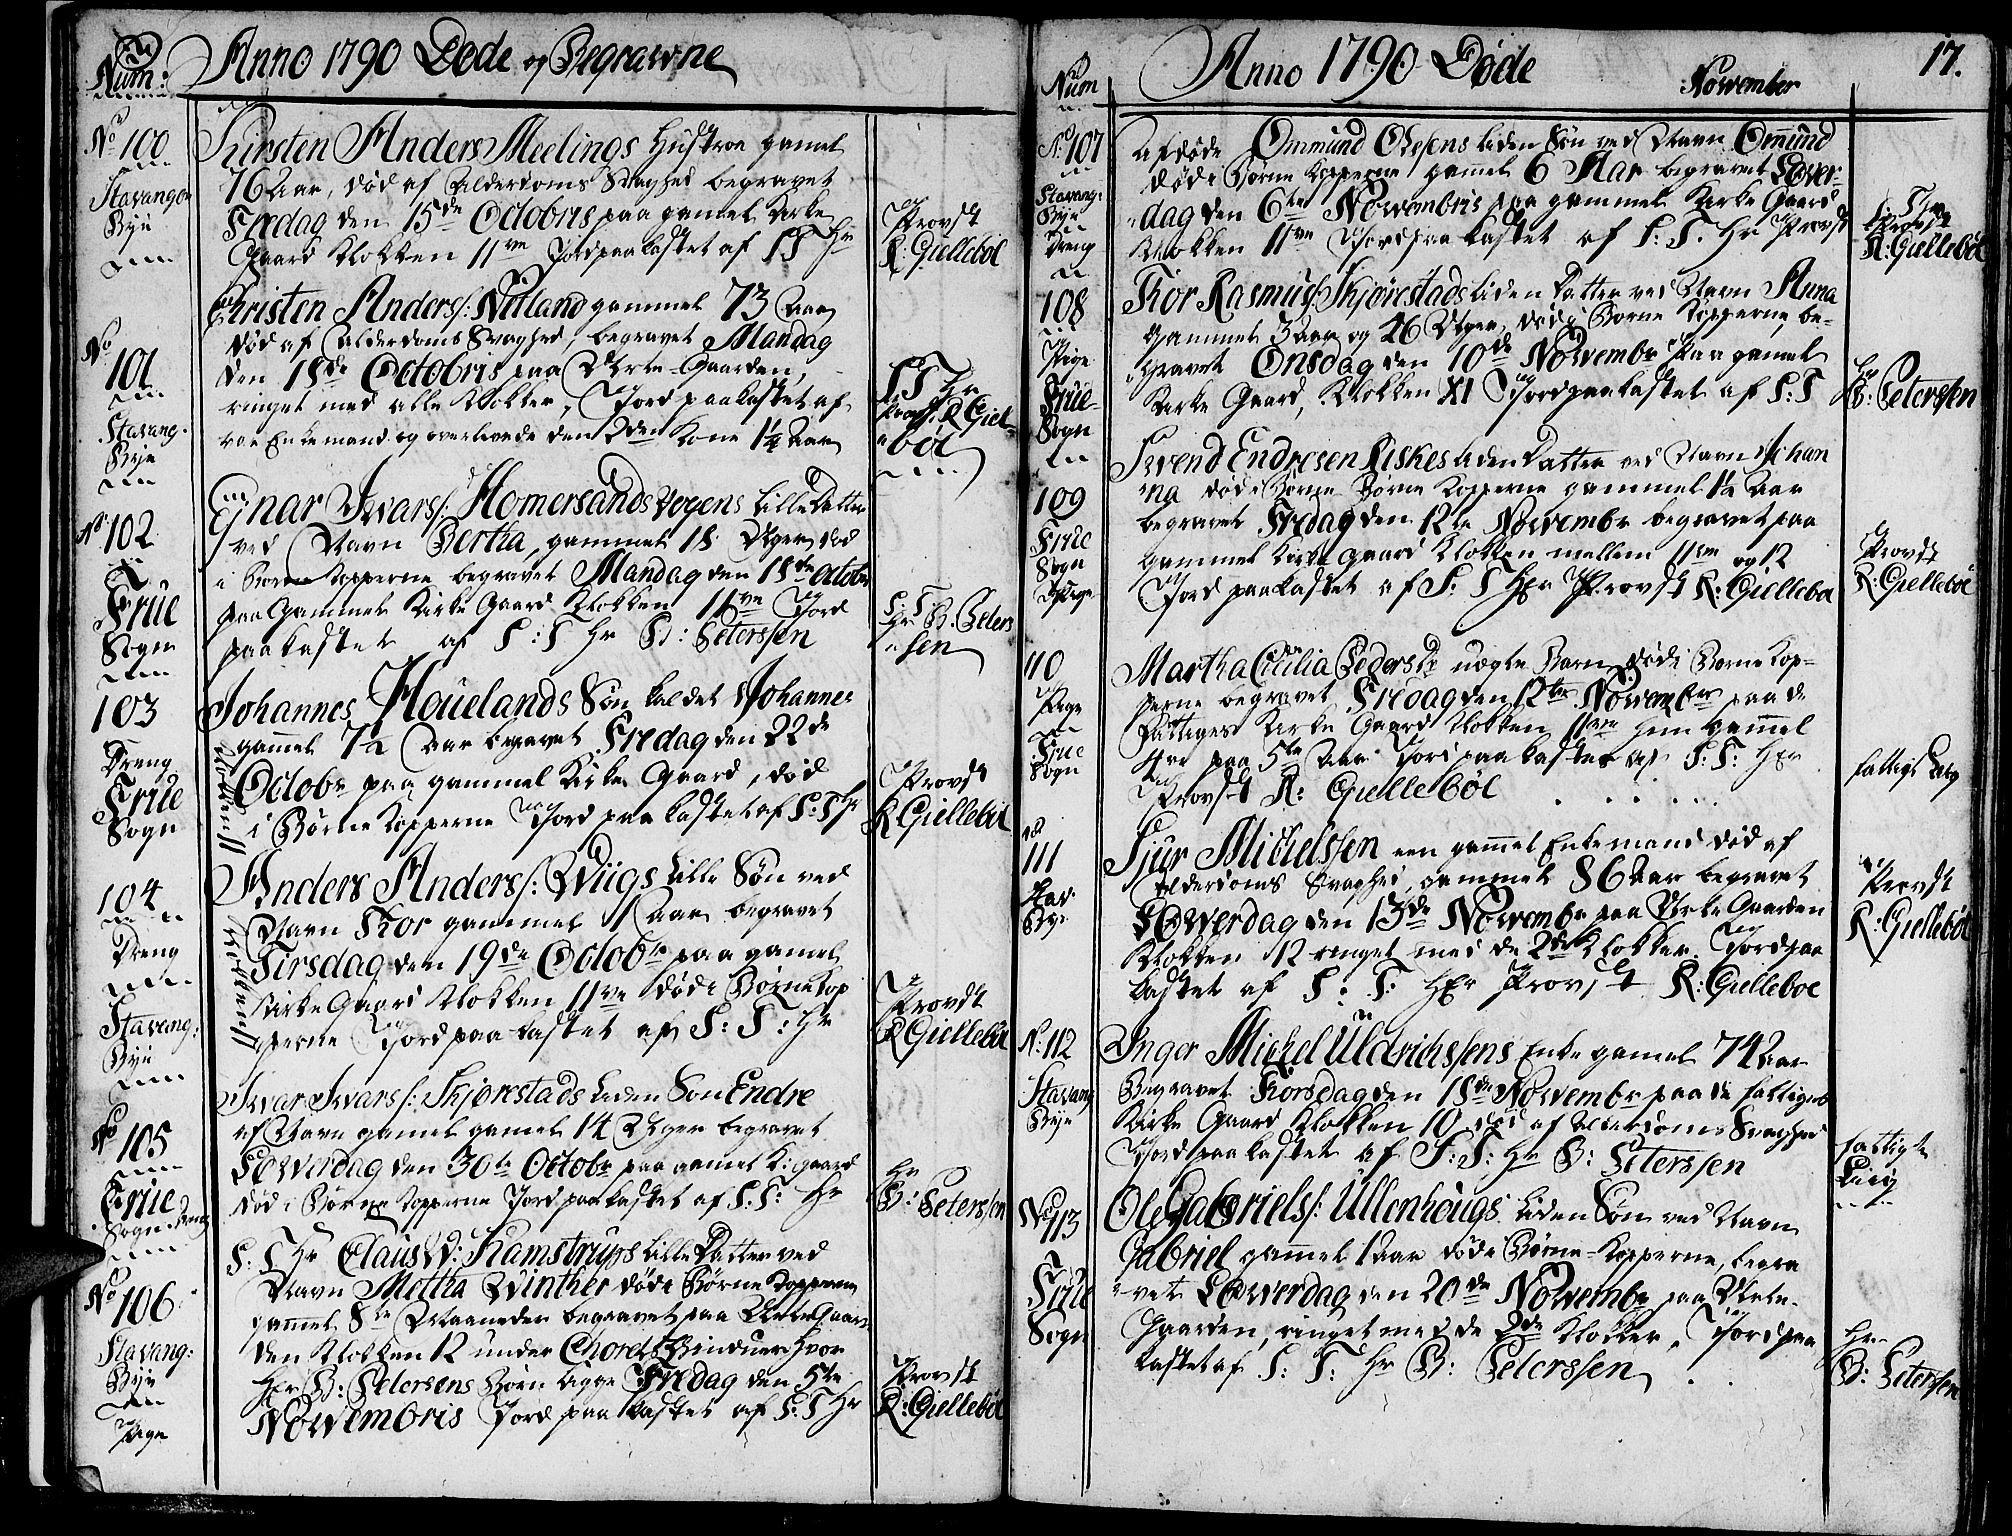 Num:
Anno 1790 Døde og Begrawne
No 100
Stavanger
Bye
Kirsten Anders Meelings Hustroe gamel
76 Aar, død af Alderdoms Svaghed begravet
Fredag den 15de Octobris paa gamel Kirke
Gaard Klokken 11ve Jord paakastet af S T Hr
Provst
R: Gielleböl
No
101
Stavang.
Bye
Christen Anders: Nütland gammel 73 Aar
død af Alderdoms Svaghed, begravet Mandag
den 18de Octobris paa Urte-Gaarden,
ringet med alle Klokker, Jord paakastet af
var Enkemand og overlevede den 2den Kone 1¼ Aar
S T Hr
Provst R Giel-
böl
No 102
Frue
Sogn
Ejnar Iwars: Homersands Vogens Lille Datter
ved Navn Bertha, gammel 18 Uger død
i Børne Kopperne begravet Mandag den 18de Octobr
paa Gammel Kirke Gaard Klokken 11ve Jord
paakastet af S: T Hr B: Peterssen
S: T:
Hr B. Peters
sen
103
Dreng
Frue
Sogn
Johannes Houelands Søn kaldet Johannes
gammel 7½ Aar begravet Fredag den 22de
Octobr paa gammel Kirke Gaard, død
i Børne Kopperne Jord paa kastet af S: T Hr
Klokken 11
Provst
R Gielleböl
104
Dreng
Stavang:
Bye
Anders Anders: Wiigs Lille Søn ved
Navn Thor gammel 1 Aar begravet
Tirsdag den 19de Octobr paa gamel
Kirke Gaard Klokken 11ve død i Børne Kop
perne Jord paa kastet af S: T: Hr
Provst
R Gielleböl
No 105
Frue
Sogn Dreng
Iwar Iwars: Skjørestads Liden Søn Endre
af Navn gamel gamel 14 Uger begravet
Løwerdag den 30te Octobr paa gamel K: gaard
død i Børne Kopperne Jord paa kastet af S: T: Hr
Hr
B: Peterssen
No 106
Stavang:
Bye
Pige
S: T Hr Claus W: Kamstrups Lille Datter ved
Navn Mettha Winther død i Børne Kopperne
gammel 8te Maaneder begravet paa Urte Gaar
den Klokken 12 under Chorets Winduer hvor
Hr B: Petersens Børn ligge Fredag den 5te
Nowembris Jord paa kastet af S: T Hr
Provst
R: Gielleböl
Num
Anno 1790 Døde
Nowember
17.
N: 107
Stavang:
Bye
Dreng
Afdøde Ommund Olesens Liden Søn ved Navn Ommund
død i Børne Kopperne gamel 6 Aar begravet Løwer-
dag den 6te Nowembris paa gammel Kirke Gaard
Klokken 11ve Jord paa kastet af S: T. Hr Provst
S: T Hr
Provst
R: Gielleböl
108
Pige
Frue-
Sogn
Thor Rasmus: Skjørestads Liden Datter ved Navn Anna
gammel 3 Aar og 26 Uger, død i Børne Kopperne, be-
gravet Onsdag den 10de Nowembr Paa gamel
Kirke Gaard, Klokken XI Jord paakastet af S: T
Hr
B: Peterssen
109
Frue
Sogn
Pige
Swend Endresen Liskes Liden Datter ved Navn Johan
na død i Børne Børne Kopperne gammel 1½ Aar
begravet Fredag den 12te Nowembr begravet paa
gammel Kirke gaard Klokken mellem 11ve og 12
Jord paakastet af S: T Hr Provst R: Gielleböl
Provst
R: Gielleböl
110
Pige
Frue
Sogn
Martha Cicilia Peders Dr uægte Barn død i Børne Kop-
perne begravet Fredag den 12te Nowembr paa de
Fattiges Kirke Gaard Klokken 11ve hun gammel
4re paa 5te Aar Jord paa kastet af S: T: Hr
Provst R: Gielleböl
fattigs Liig
No
111
Stav
Bye
Sjur Michelssen een gammel Enkemand død af
Alderdoms Svaghed, gammel 86 Aar begravet
Løwerdag den 13de Nowembr paa Urte Gaarden
Klokken 12 ringet med de 2de Klokker. Jord paa
kastet af S: T: Hr Provst R: Gielleböl
Provst
R: Gielleböl
N: 112
Stavang
Bye
Inger Michel Uldrichssens Enke gamel 74 Aar
Begravet Torsdag den 18de Nowembr paa de fattiges
Kirke Gaard Klokken 10 død af Alderdoms Svaghed
Jord paa kastet af S: T: Hr B: Peterssen
fattigt
Liig
No 113
Frue
Sogn
Ole Gabriels: Üllenhougs Liden Søn ved Navn
Gabriel gammel 1 Aar død i Børne-Kopperne, begra
vet Løwerdag den 20de Nowembr paa Urte-
Gaarden, ringet med de 2de Klokker, Jord paa
kastet af S: T: Hr B: Peterssen
Hr
B: Peterssen